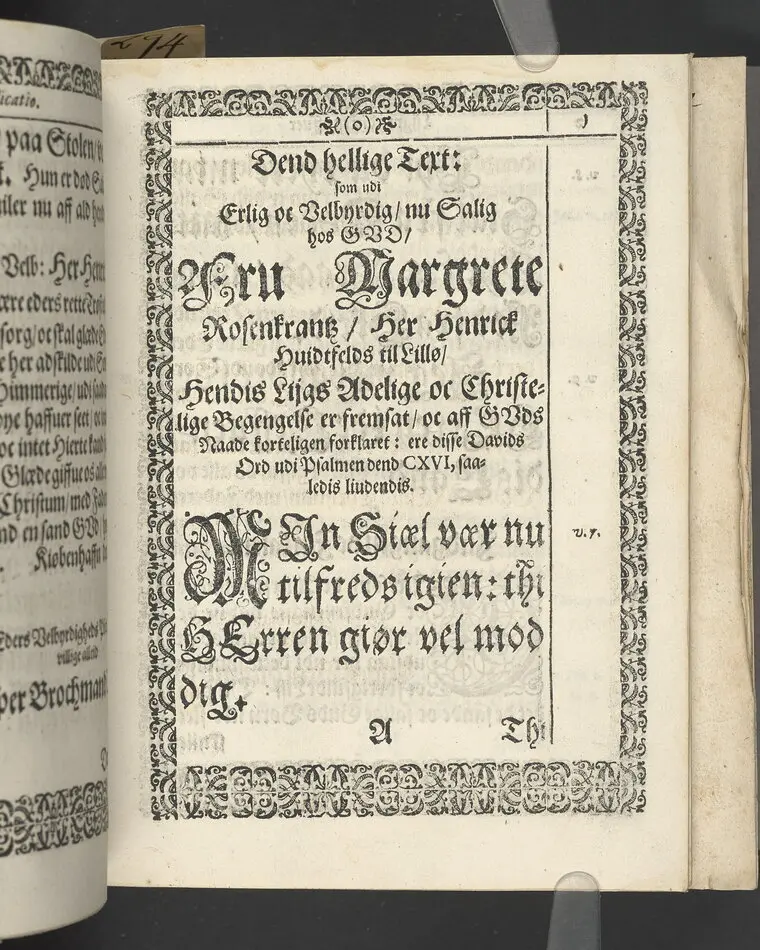 274
icatio.
paa Stolen/
Hun er død
nu aff ald
Velb: Her Henr
være eders rette
sorg/oc skal glæde
her adskilde ud
Himmerige/udi
haffuer seet/oc
oc intet Hierte kand
Glæde giffue os
Christum/med
nd en sand GV
Kiøbenhaffn
Eders Velbyrdigheds
villige altid
per Brochmand
(o)
Dend hellige Text:
som udi
Erlig oc Velbyrdig/ nu Salig
hos GVD/
Fru Margrete
Rosenkrantz / Her Henrick
Huidtfelds til Lillø/
Hendis Lijgs Adelige oc Christe-
lige Begengelse er fremsat/ oc aff GVds
Naade korteligen forklaret: ere disse Davids
Ord udi Psalmen dend CXVI, saa-
ledis liudendis.
MIn Siæl vær nu
tilfreds igien: thi
HErren giør vel mod
dig.
v. 7.
A Thi